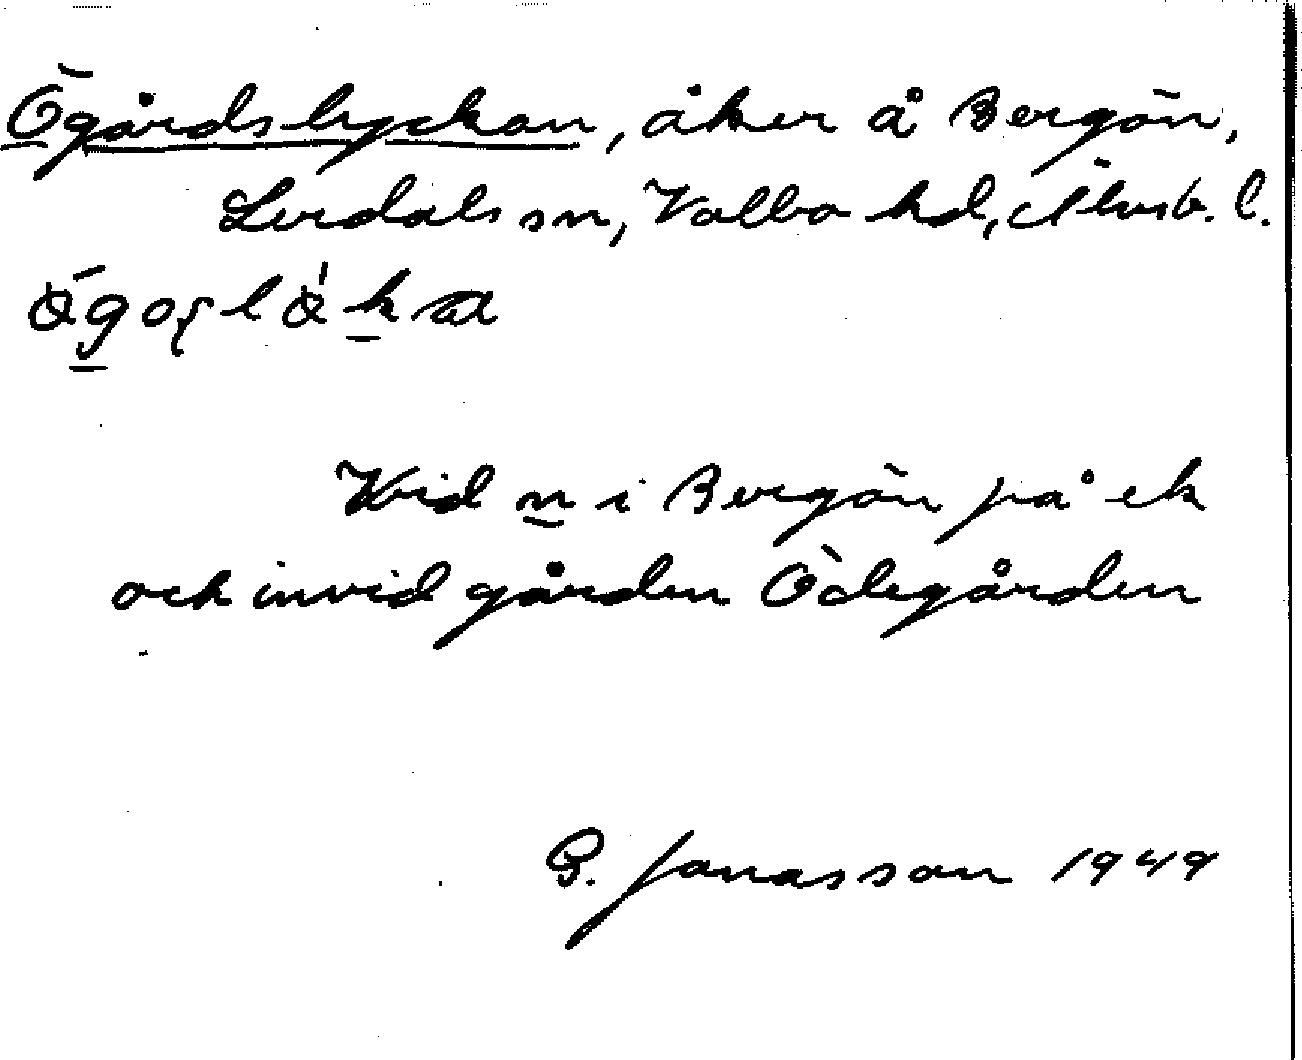 Ögårdslyckan, åker å Bergön,
Lerdals sn, Valbo hd, Älvsb. l.
Vid n i Bergön på ek
och invid gården Ödegården
G. Jonasson 1949